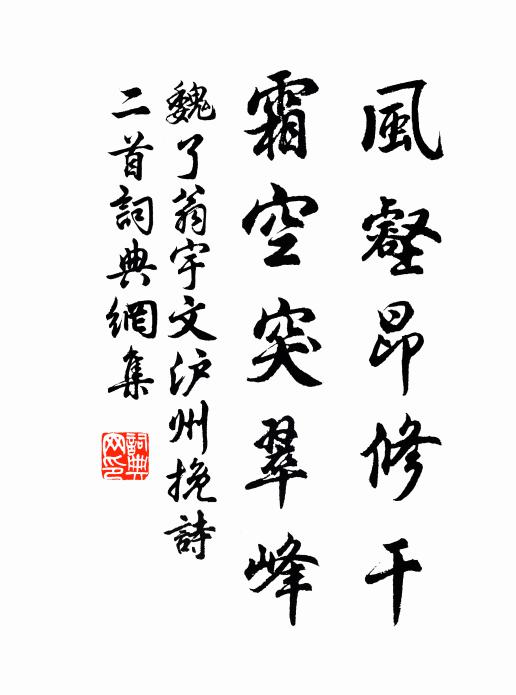 風壑昂修干
霜空突翠峰
魏了翁宇文沪州挽詩
二首詞典網集
詞典
网印